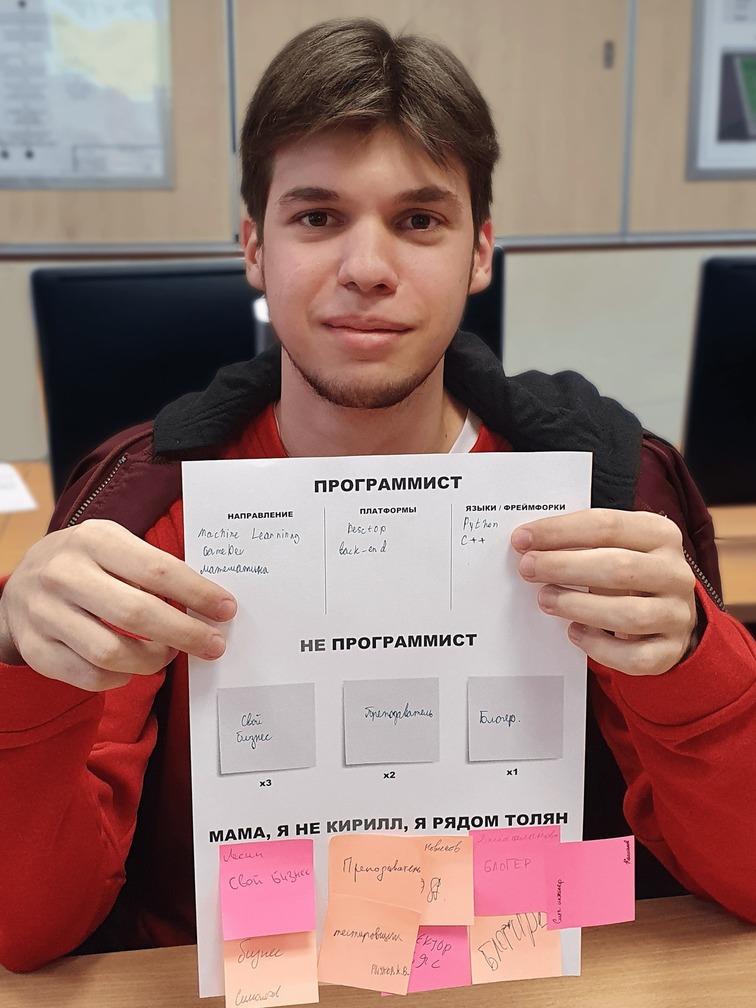 ПРОГРАММИСТ
НАПРАВЛЕНИЕ
Machine Learning
GameDev
математика
ПЛАТФОРМЫ
Desctop
back-end
ЯЗЫКИ / ФРЕЙМФОРКИ
Python
C++
НЕ ПРОГРАММИСТ
Свой
бизнес
x3
Преподаватель
x2
Блогер.
x1
МАМА, Я НЕ КИРИЛЛ, Я РЯДОМ ТОЛЯН
Свой бизнес
Преподаватель
БЛОГЕР
бизнес
тестировщик